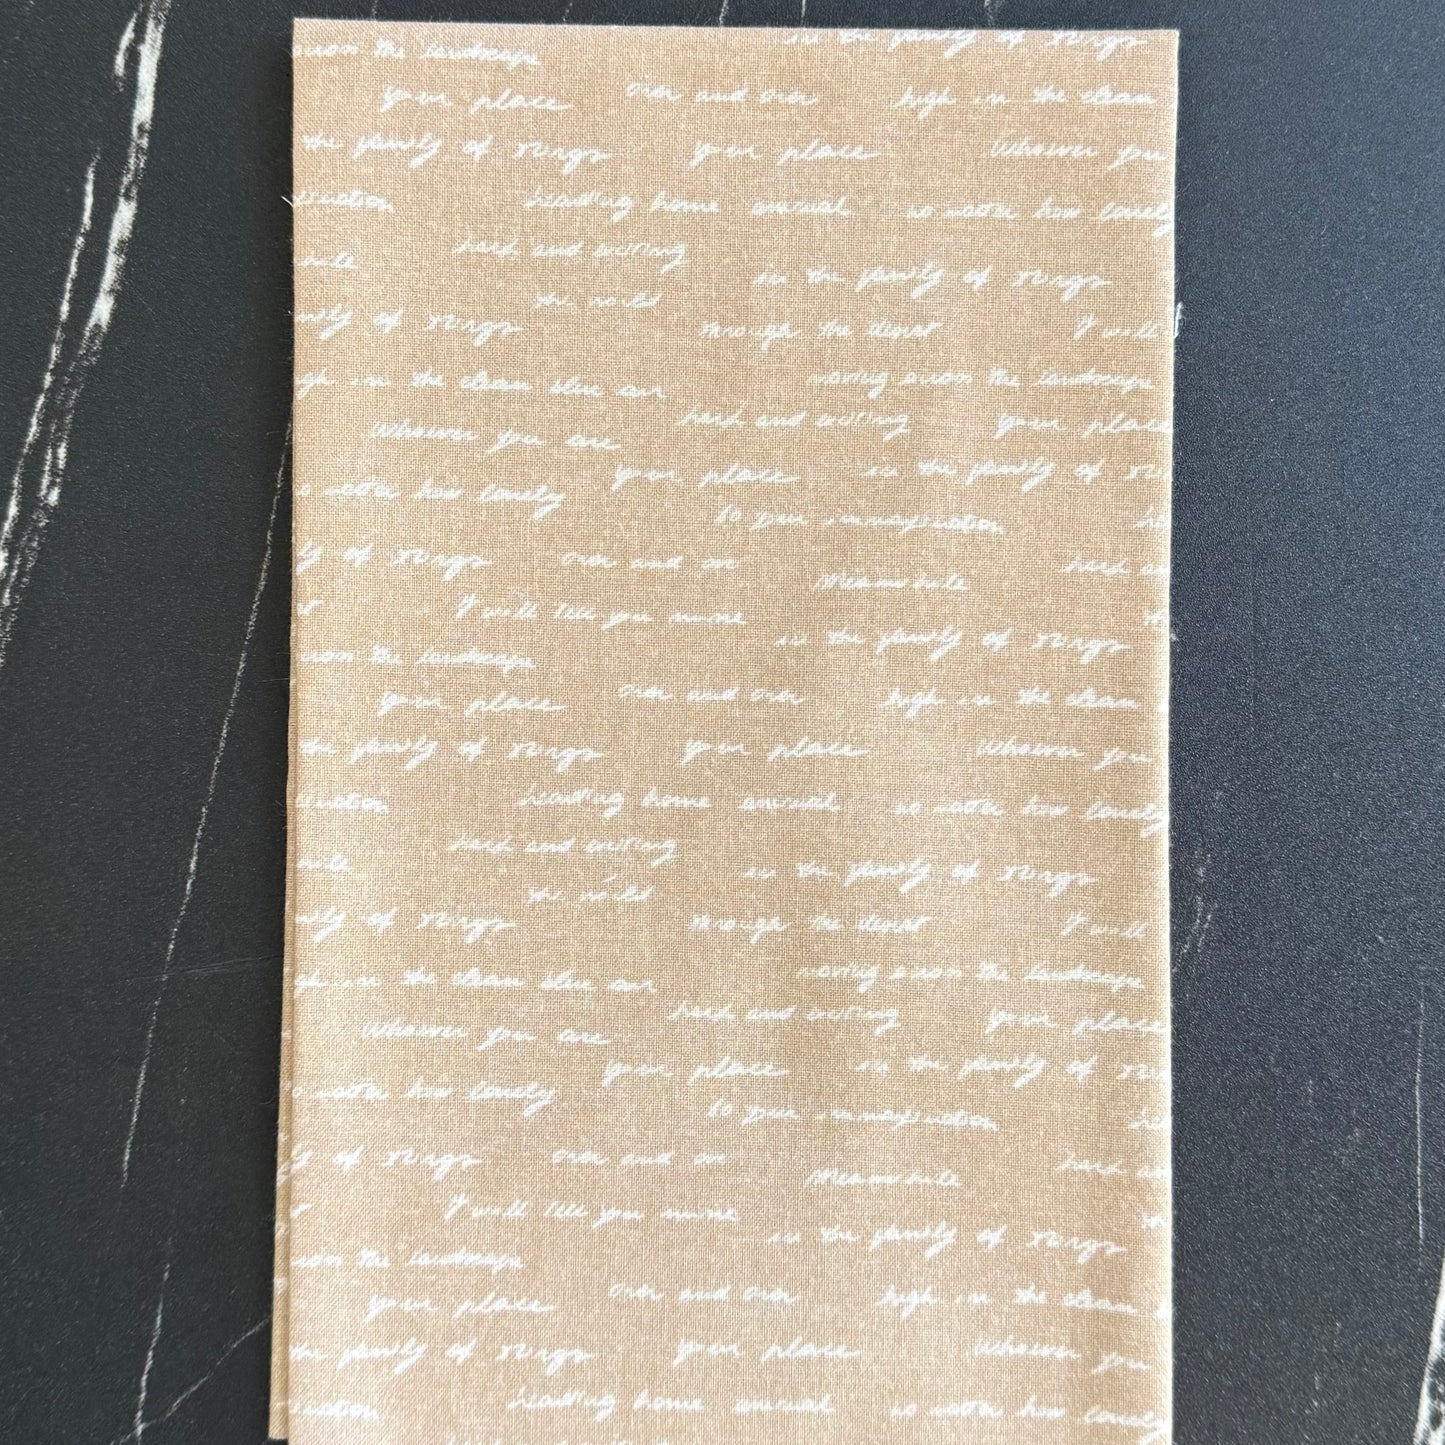 in the family of things
across the landscape
your place over and over high in the clean
the family of things your place Whoever you
heading home announce no matter how lonely
harsh and exciting
in the family of things
the world
family of things through the desert I will
in the clean blue air moving across the landscape
harsh and exciting your place
Whoever you are
your place in the family of
matter how lonely
to your imagination
of things over and on harsh
Meanwhile
I will tell you mine
in the family of things
the landscape
your place over and over high in the clean
the family of things your place Whoever you
heading home announce no matter how lonely
harsh and exciting
in the family of things
the world
of things through the desert I will
in the clean blue air moving across the landscape
harsh and exciting your place
Whoever you are
your place in the family of
matter how lonely
to your imagination
of things over and on harsh
Meanwhile
I will tell you mine
in the family of things
the landscape
your place over and over high in the clean
the family of things your place Whoever you
heading home announce no matter how lonely